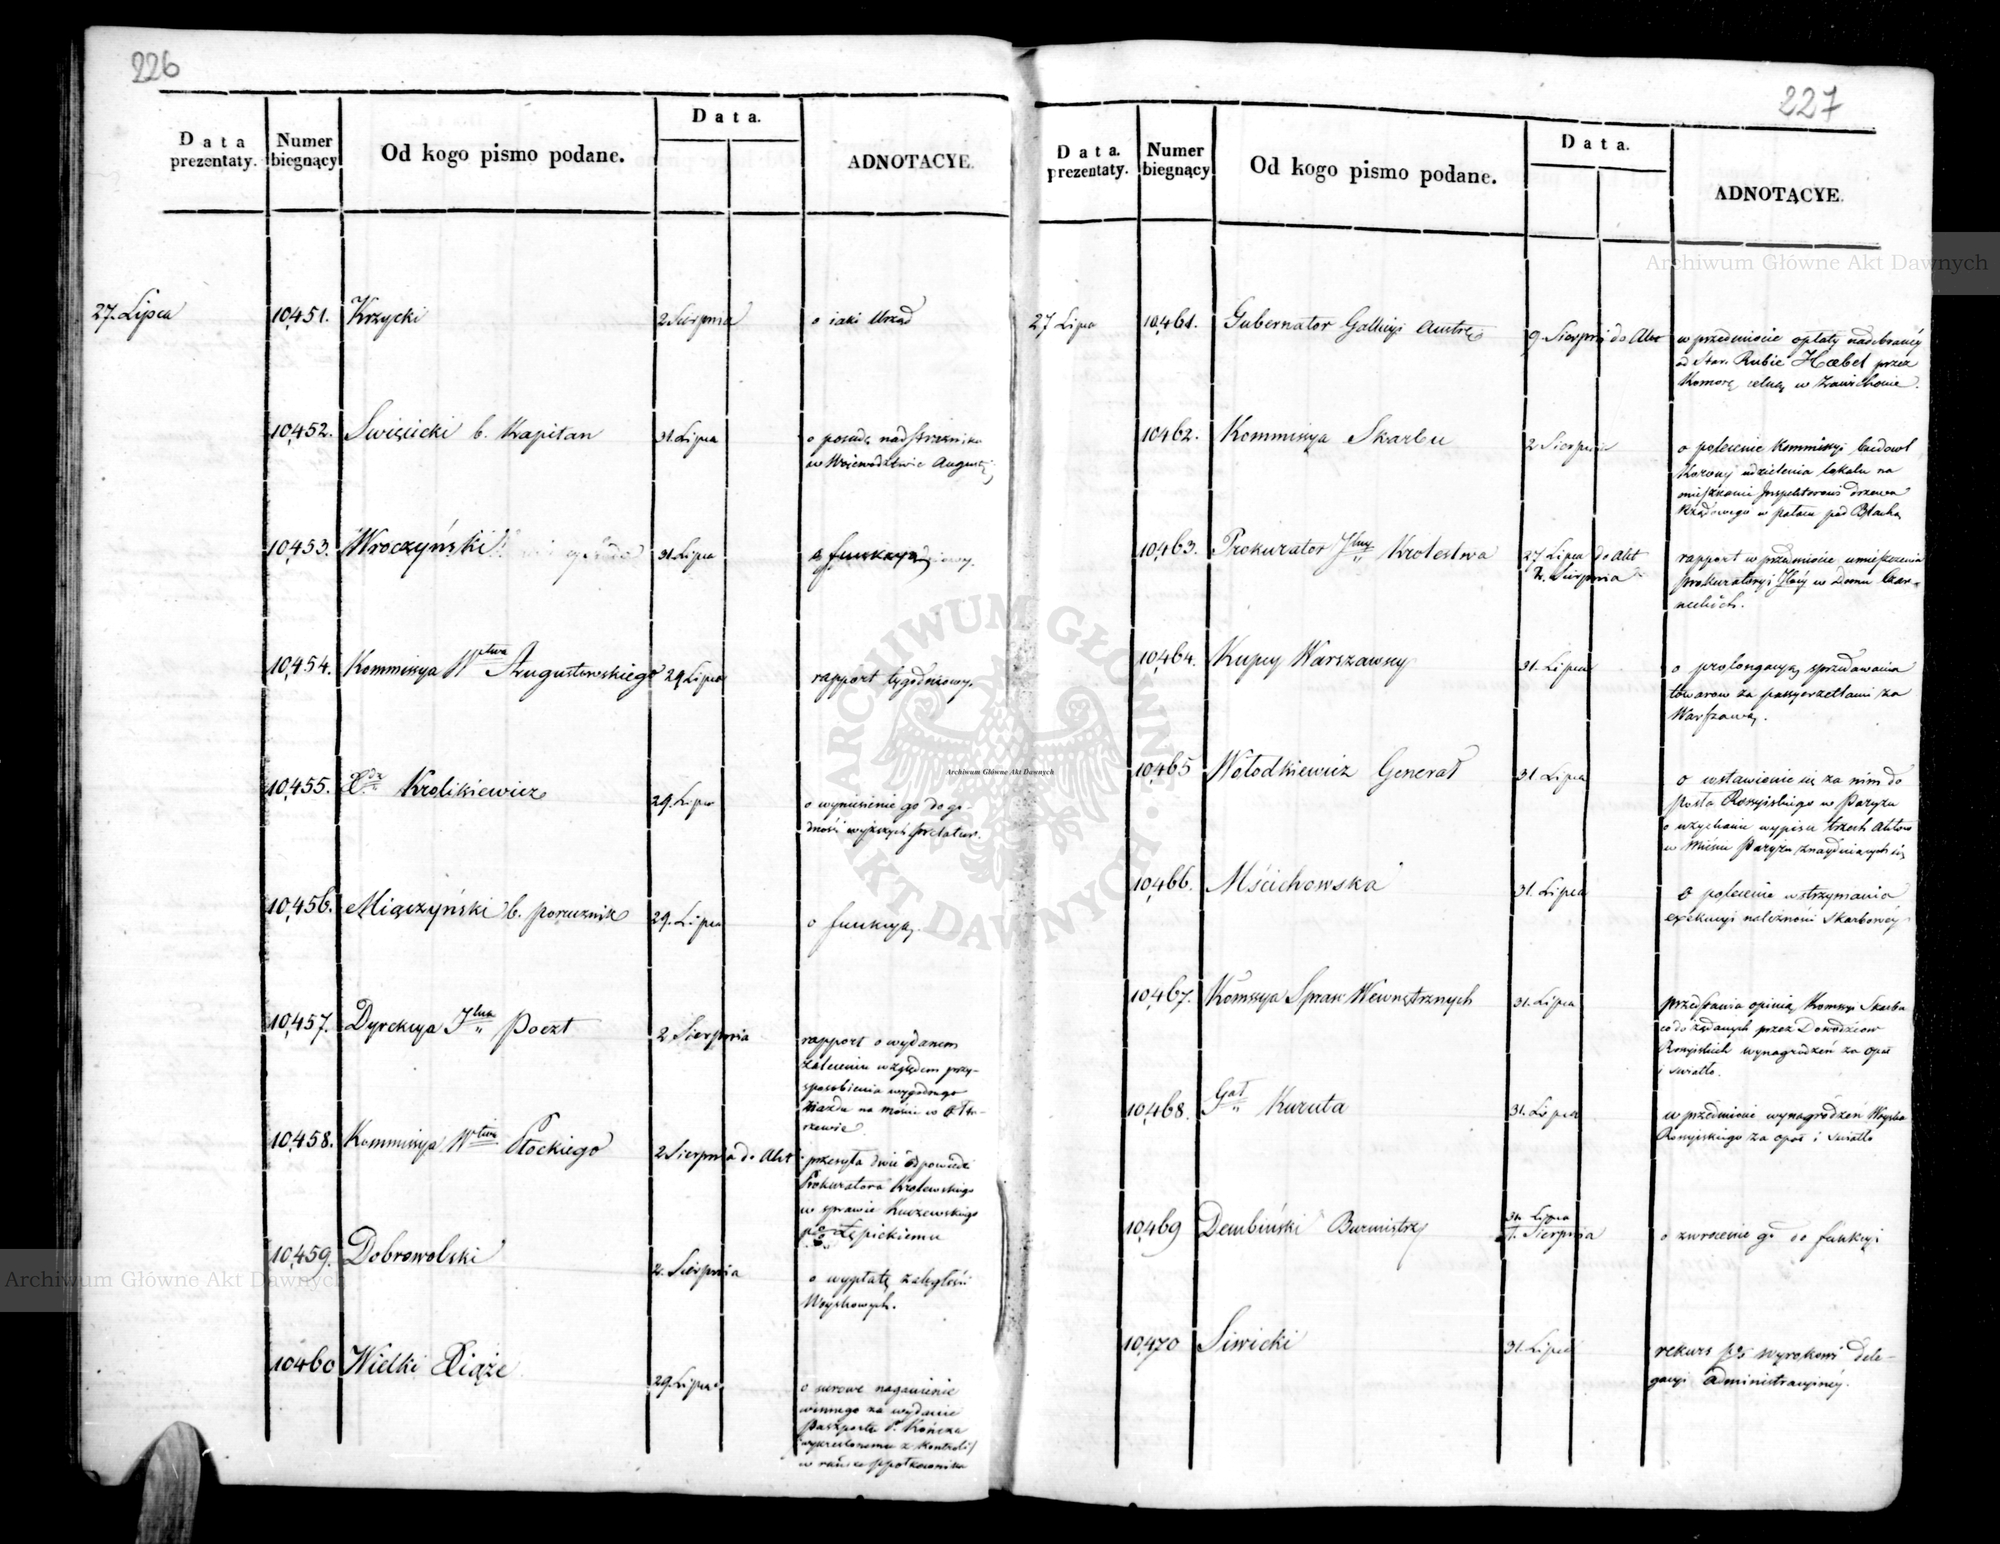 226
Data prezentaty.
Numer biegnący
Od kogo pismo podane.
Data.
ADNOTACYE.
27. Lipca
10,451. Krzycki
2 Sierpnia
o iaki Urząd
10,452. Swięcicki b. Kapitan
31. Lipca
o posadę nadstrażnika
w Województwie August:
10,453. Wroczyński
31 Lipca
o funkcyą
10,454. Kommissya Wtwa Augustowskiego
29 Lipca
rapport tygodniowy.
10,455. Xdz Krolikiewicz
29. Lipca
o wyniesienie go do go-
dności wyższych prelatur.
10,456. Miączyński b. porucznik
29. Lipca
o funkcyą.
10,457. Dyrekcya Jlna Poczt
2 Sierpnia
rapport o wydanem
zaleceniu względem przy-
sposobienia wygodnego
ziazdu na moście w
rzewie
10,458. Kommissya Wtwa Płockiego
2 Sierpnia do Akt
przesyła dwie odpowiedzi
Prokuratora Krolewskiego
w sprawie Kuczewskiego
pko Łępickiemu
10,459. Dobrowolski
2. Sierpnia
o wypłatę zaległości
Woyskowych.
10,460 Wielki Xiąże
29. Lipca
o surowe naganienie
winnego za wydanie
Paszportu P. Kończa
wykreślonemu z kontroli
w randze ppołkownika
227
Data. prezentaty.
Numer biegnący
Od kogo pismo podane.
Data.
ADNOTACYE.
27 Lipca
10,461. Gubernator Gallicyi Austr:
9. Sierpnia do Akt
w przedmiocie opłaty nadebraney
od Star. Rubie Haebel przez
Komorę celną w Zawichoscie.
10,462. Kommissya Skarbu
2 Sierpnia
o polecenie Kommissyi budowl
Korony udzielenia lokalu na
mieszkanie Jnspektorowi drzewa
Rządowego w pałacu pod Blachą
10,463. Prokurator Jlny Krolestwa
27 Lipca do Akt
2. Sierpnia
rapport w przedmiocie umieszczenia
prokuratoryi Jlney w Domu Czar-
neckich.
10,464. Kupcy Warszawscy
31. Lipca
o prolongacyą sprzedawania
towarow za passyerzetlami za
Warszawą.
10,465 Wołodkiewicz Generał
31 Lipca
o wstawienie się za nim do
posła Rossyiskiego w Paryżu
o uzyskanie wypisu trzech Aktow
w Mieście Paryżu znayduiących się
10,466. Mścichowska
31. Lipca
o polecenie wstrzymania
exekucyi należności Skarbowey
10,467. Komssya Spraw Wewnętrznych
31. Lipca
przedstawia opinią Komssyi Skarbu
co do żądanych przez Dowodzcow
Rossyiskich wynagrodzeń za opał
i swiatło.
10,468. Gał Kuruta
31. Lipca
w przedmiocie wynagrodzeń Woyska
Rossyiskiego za opał i swiatło
10,469 Dembiński Burmistrz
31. Lipca
Sierpnia
o zwrocenie go do funkcyi
10,470 Siwicki
31. Lipca
rekurs pko wyrokowi dele-
gacyi Administracyiney.
Archiwum Główne Akt Dawnych
Archiwum Główne Akt Dawnych
Archiwum Główne Akt Dawnych
ARCHIWUM GŁÓWNE AKT DAWNYCH